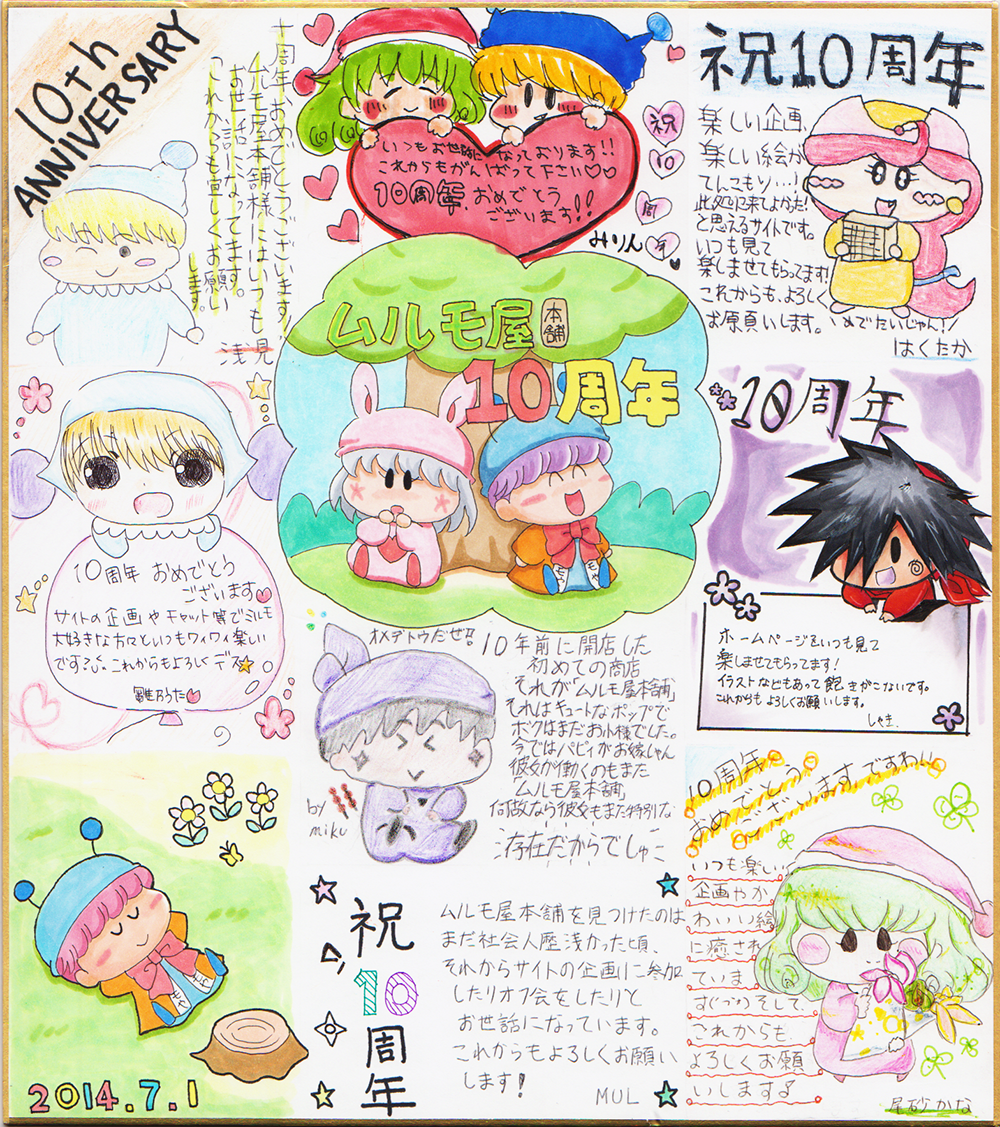 10th
ANNIVERSARY
十周年おめでとうございます!
ムルモ屋本舗様にはいつも
お世話になってます。
これからも宜しくお願い
します。
浅見
いつもお世話になっております!!
これからもがんばって下さい♡♡
10周年、おめでとう
ございます!!
みりん
祝
10
周
年
祝10周年
楽しい企画、
楽しい絵が
てんこもり…!
此処に来てよかった!
と思えるサイトです。
いつも見て
楽しませてもらってます!
これからも、よろしく
お願いします。
めでたいじゃん!
はくたか
ムルモ屋本舗
10周年
10周年 おめでとう
ございます
サイトの企画やチャット等でミルモ
大好きな方々といつもワイワイ楽しい
です。これからもよろしくデス☆
雛乃うた
10周年
ホームページをいつも見て
楽しませてもらってます!
イラストなどもあって飽きがこないです。
これからもよろしくお願いします。
しゃき
オメデトウだぜ!!
by
miku
10年前に開店した
初めての商店
それが「ムルモ屋本舗」
それはキュートなポップで
ボクはまだお小様でした。
今ではパピィがお嫁しゃん
彼女が働くのもまた
「ムルモ屋本舗」
何故なら彼女もまた特別な
存在だからでしゅこ
10周年
おめでとう
ございますですわい
いつも楽しい
企画やか
わいい絵
に癒され
ていま
す(づつ)そして、
これからも
よろしくお願
いします♪
尾砂かな
2014.7.1
祝
10
周
年
ムルモ屋本舗を見つけたのは
まだ社会人歴浅かった頃、
それからサイトの企画に参加
したりオフ会をしたりと
お世話になっています。
これからもよろしくお願い
します!
MUL